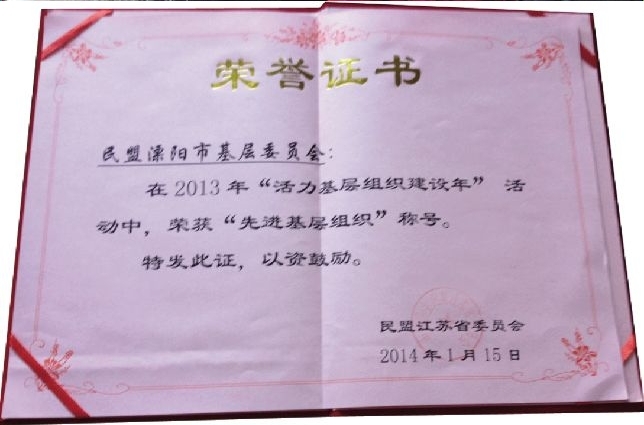 荣誉证书
民盟溧阳市基层委员会：
在2013年“活力基层组织建设年” 活
动中，荣获“先进基层组织”称号。
特发此证，以资鼓励。
民盟江苏省委员会
2014年1月15日